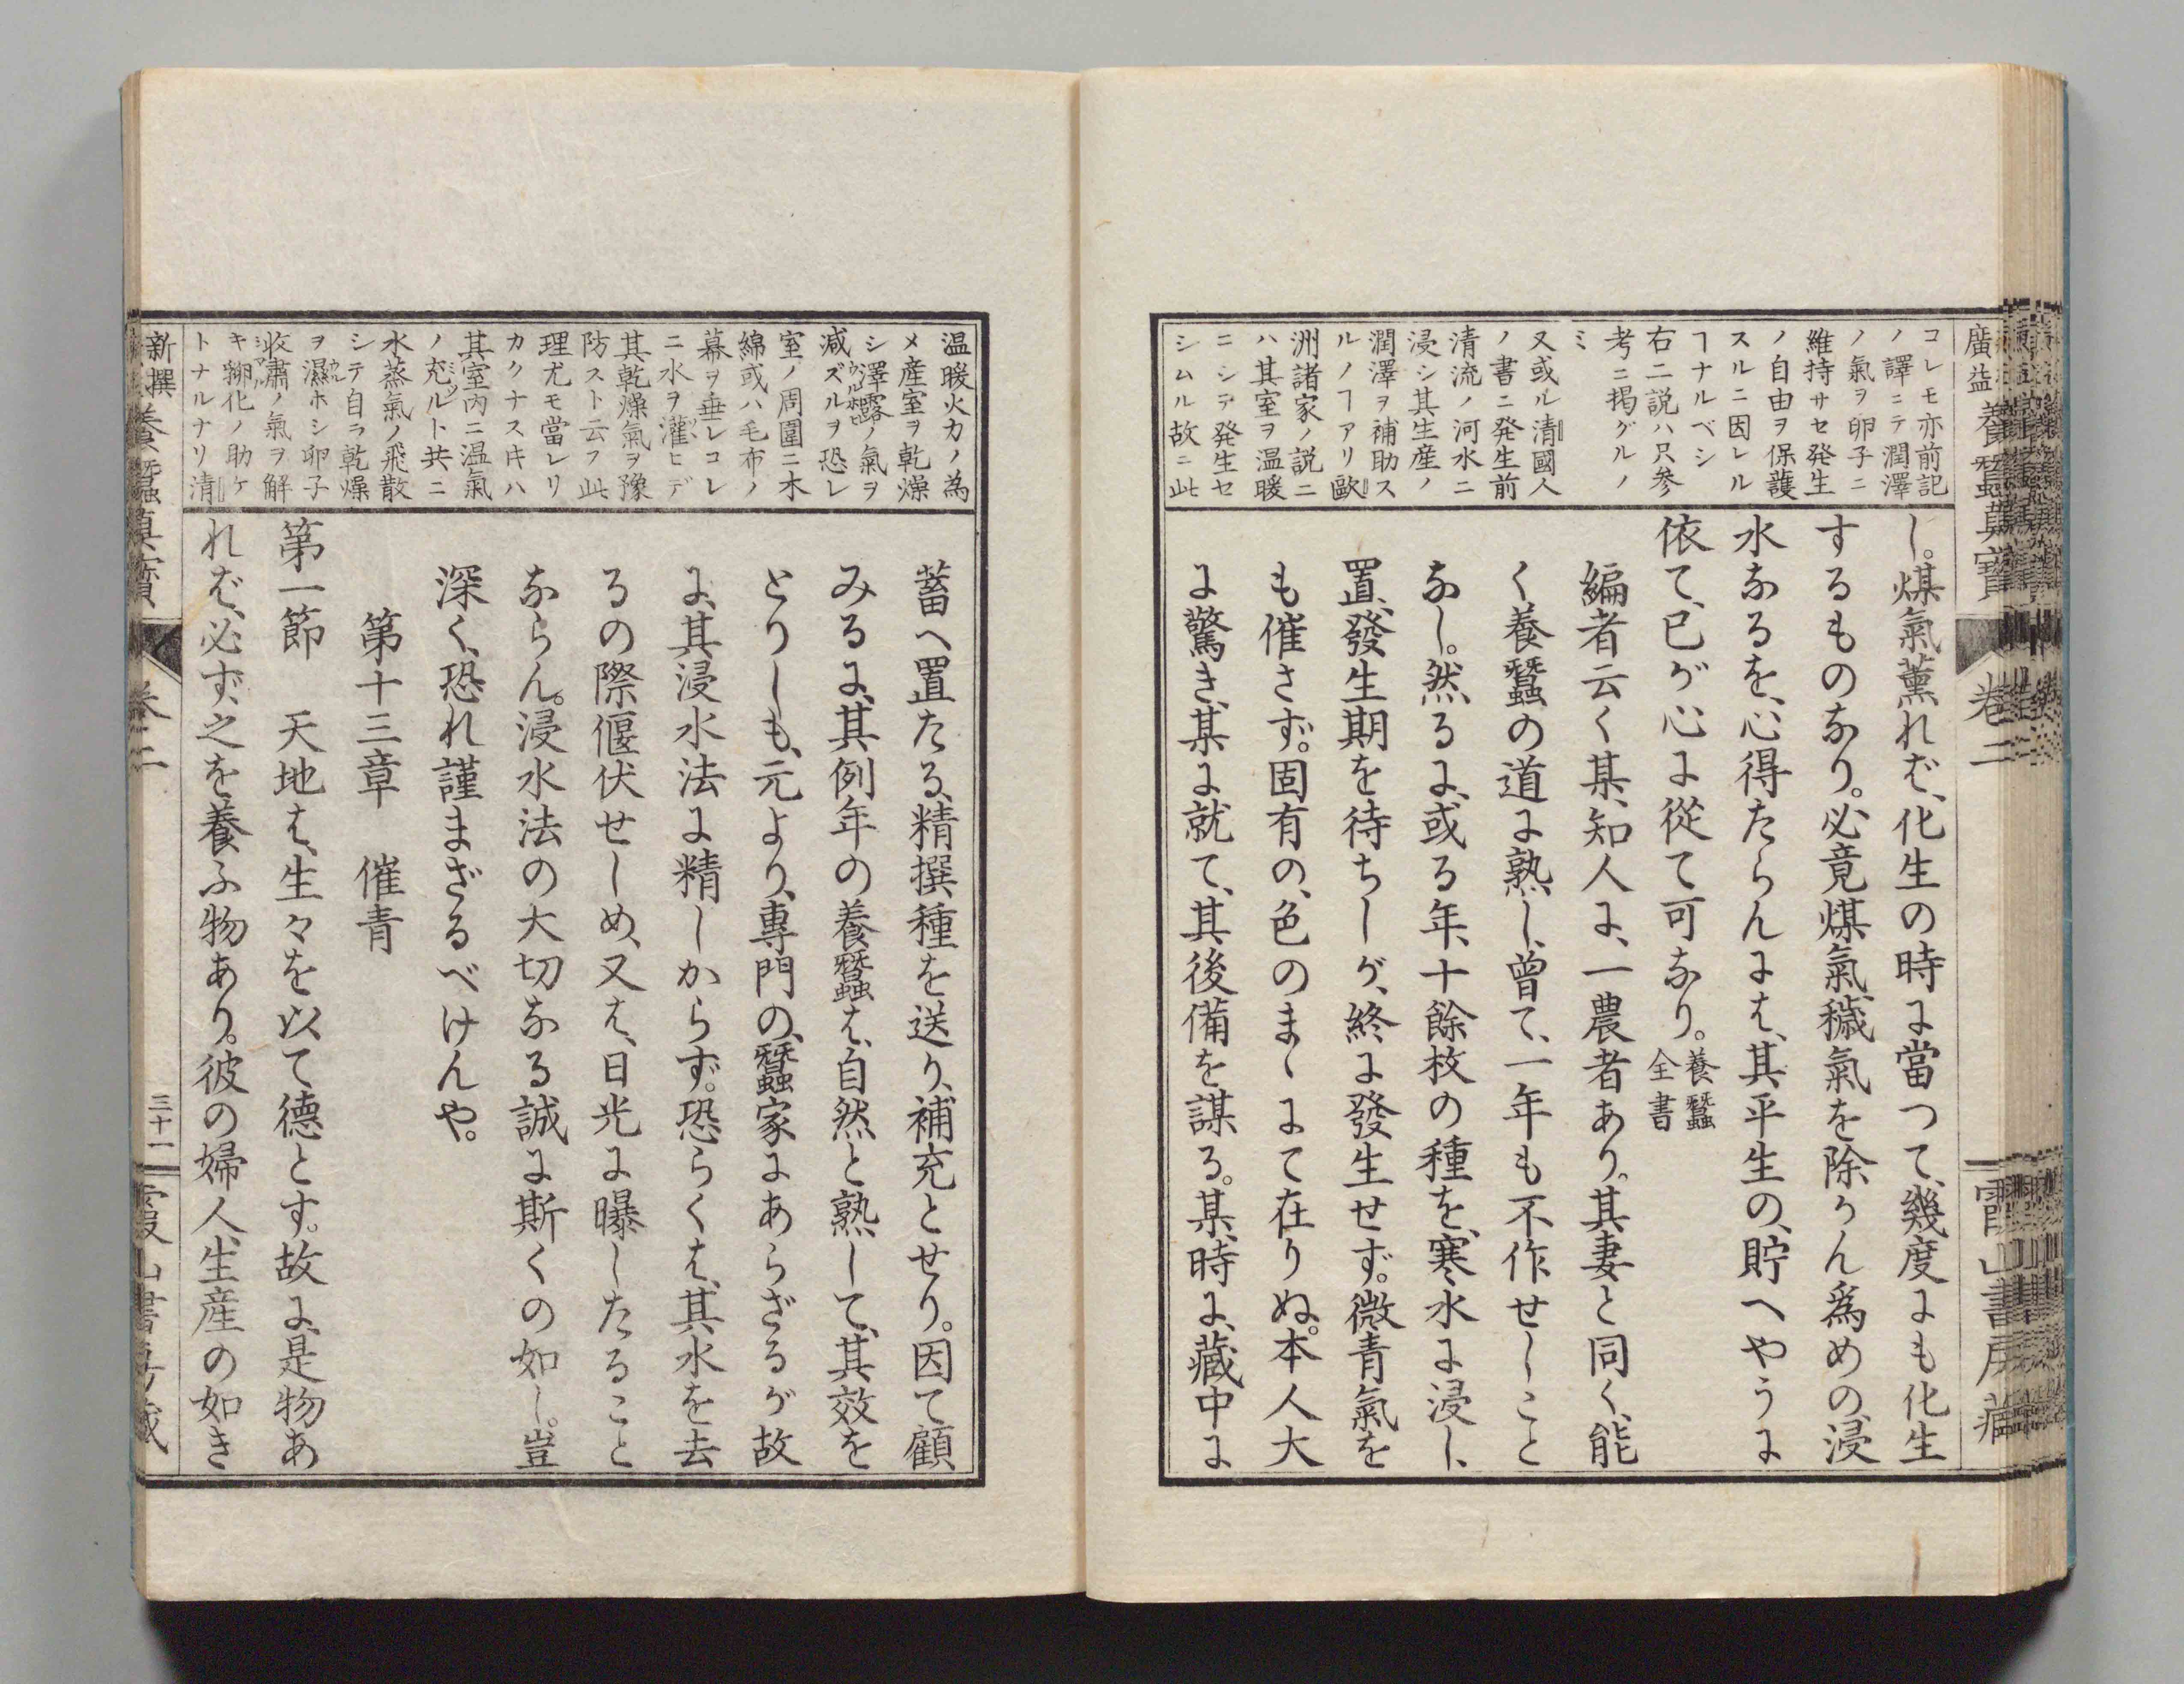 廣益養蠶眞寶 卷二 霞山書房藏
コレモ亦前記
ノ譯ニテ潤澤
ノ氣ヲ卵子ニ
維持サセ発生
ノ自由ヲ保護
スルニ因レル
ヿナルベシ
右二説ハ只參
考ニ掲グルノ
ミ
又或ル清國人
ノ書ニ発生前
清流ノ河水ニ
浸シ其生産ノ
潤澤ヲ補助ス
ルノヿアリ歐
洲諸家ノ説ニ
ハ其室ヲ温暖
ニシテ発生セ
シムル故ニ此
し。煤氣薫れバ、化生の時に當つて、幾度にも化生
するものあり。必竟煤氣、穢氣を除かん爲めの、浸
水なるを、心得たらんには、其平生の、貯へやうに
依て、已が心に從て可なり。養蠶全書
編者云く某、知人に、一農者あり。其妻と同く、能
く、養蠶の道に熟し、曾て、一年も不作せしこと
なし。然るに、或る年、十餘枚の種を、寒水に浸し、
置、發生期を待ちしが、終に發生せず。微青氣を
も催さず。固有の、色のまゝにて在りぬ。本人大
に驚き、某に就て、其後備を謀る。某、時に、藏中に
温暖火力ノ為
メ産室ヲ乾燥
シ澤露ノ氣ヲ
減ズルヲ恐レ
室ノ周圍ニ木
綿或ハ毛布ノ
幕ヲ垂レコレ
ニ水ヲ灌ヒデ
其乾燥氣ヲ豫
防スト云フ此
理尤モ當レリ
カクナス㪽ハ
其室内ニ温氣
ノ充ルト共ニ
水蒸氣ノ飛散
シテ自ラ乾燥
ヲ濕ホシ卵子
收肅ノ氣ヲ解
キ孵化ノ助ケ
トナルナリ清
蓄へ置たる、精撰種を送り、補充とせり。因て顧
みるに、其例年の養蠶は、自然と熟して、其效を
とりしも、元より、專門の、蠶家にあらざるが故
に、其浸水法に精しからず。恐らくは、其水を去
るの際偃伏せしめ、又は、日光に曝したること
ならん。浸水法の大切なる誠に斯くの如し。豈
深く、恐れ謹まざるべけんや。
第十三章 催青
第一節 天地は、生々を以て德とす。故に、是物あ
れバ、必ず、之を養ふ物あり。彼の婦人、生産の如き
新撰養蠶眞寶 卷二 三十一 霞山書房藏